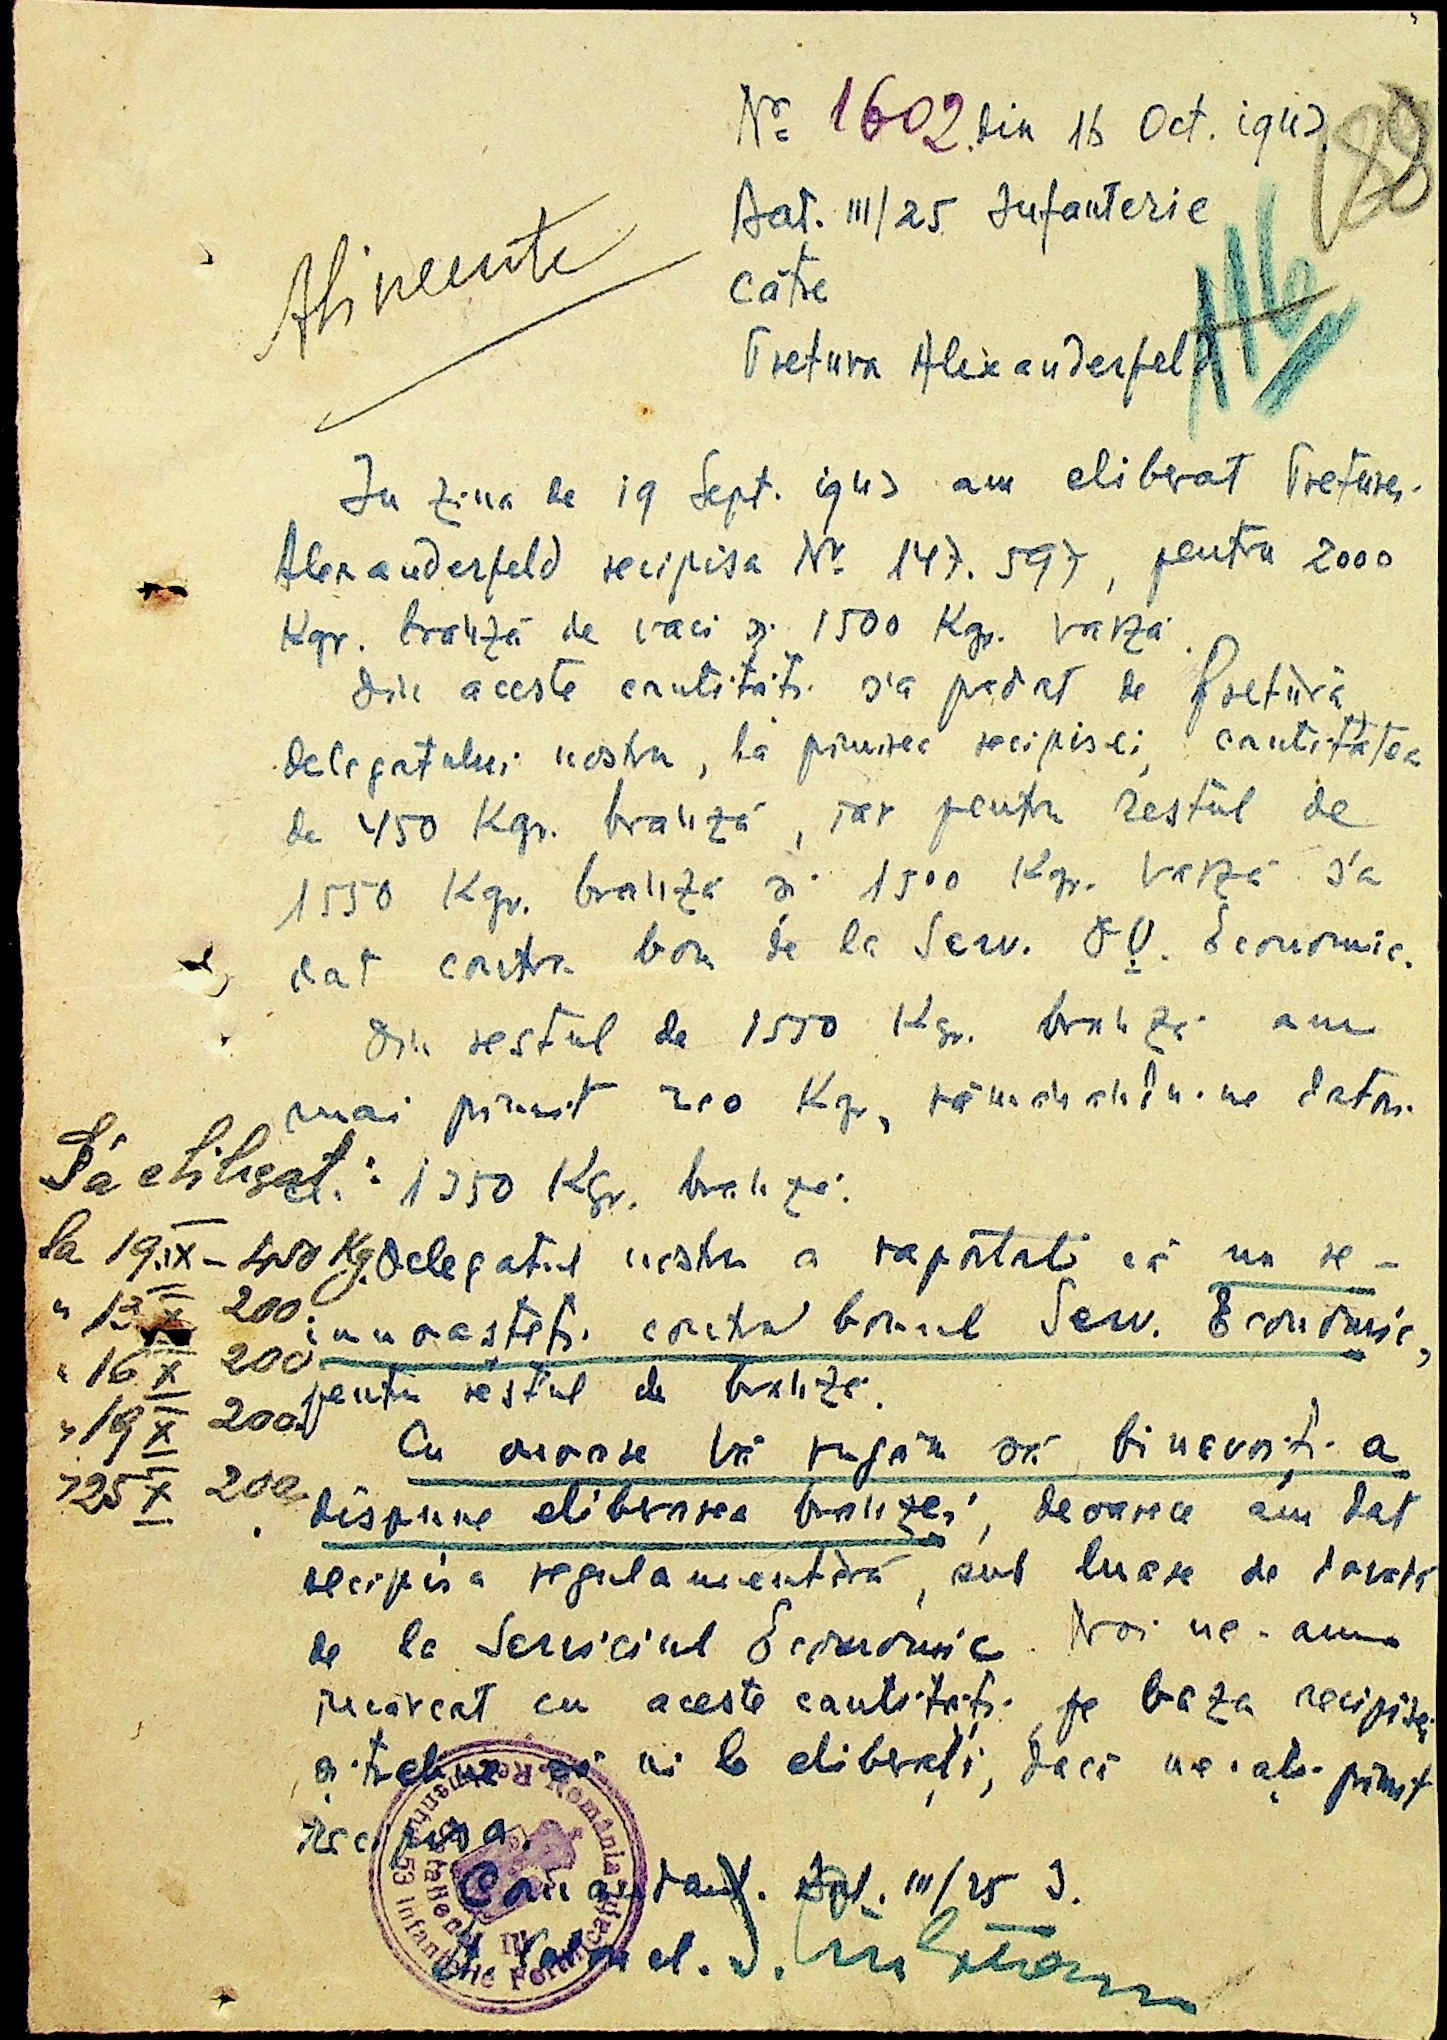 Nr. 1602 din 16 Oct. 1943
188
Bat. III/25 Infanterie
către
Pretura Alexanderfeld
116
Alimente
In ziua de 19 Sept. 1943 am eliberat Preturei
Alexanderfeld recipisa Nr. 147.597, pentru 2000
Kgr. brânză de vaci și 1500 Kgr. varză.
Din aceste cantități s'a predat de Pretură
delegatului nostru, la primirea recipisei, cantitatea
de 450 Kgr. brânză, iar pentru restul de
1550 Kgr. brânză și 1500 Kgr. varză s'a
dat contra bon de la Serv. Economic.
Din restul de 1550 Kgr. brânză am
mai primit 200 Kgr, rămânându-ne datori
1350 Kgr. brânză.
S'a eliberat:
la 19.IX – 450 Kg.
" 13 X 200.
" 16 X 200
" 19 X 200
" 25 X 200
Delegatul nostru a raportat că nu re-
cunoașteți contra bonul Serv. Economic,
pentru restul de brânză.
Cu onoare vă rugăm să binevoiți a
dispune eliberarea brânzei, deoarece am dat
recipisa regulamentară, sub luare de dovadă
de la Serviciul Economic. Noi ne-am
încărcat cu aceste cantități, pe baza recipisei
și trebue să ni le eliberați, dacă ne-ați primit
recipisa.
Comandant. Bat. III/25 I.
Lt. Colonel. I.
România
Regimentul 53 Infanterie Fortificații
Batalionul III